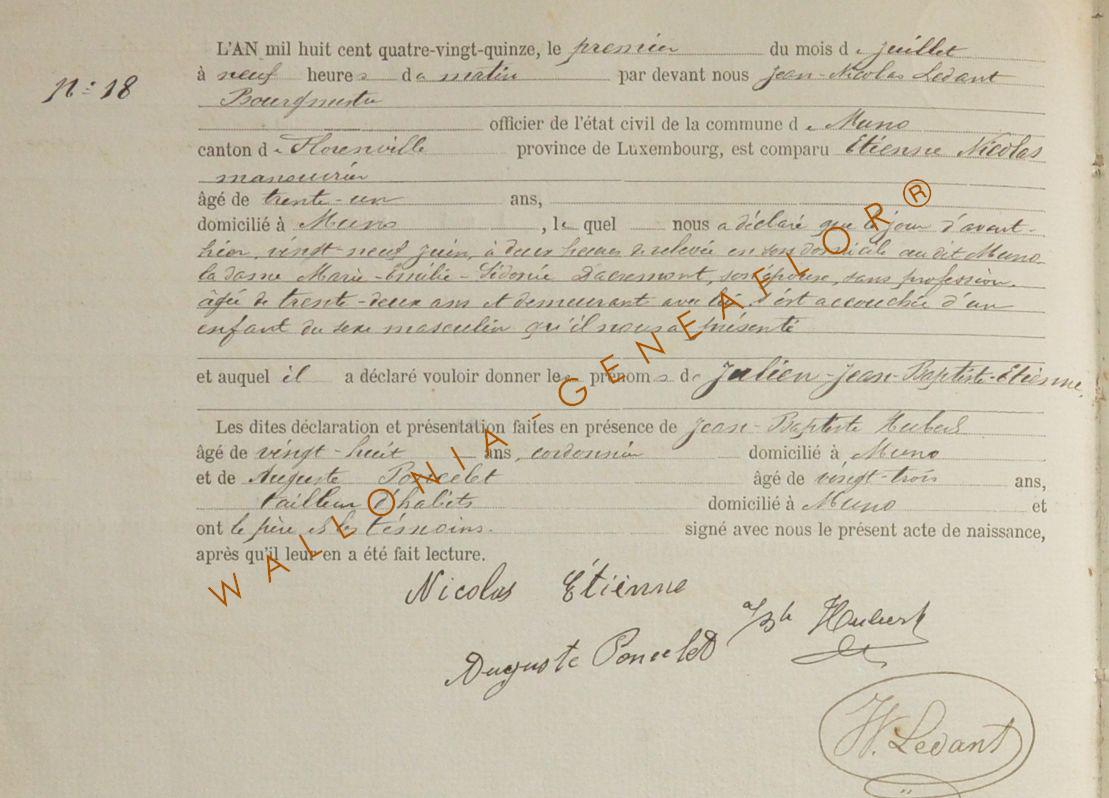 L'AN mil huit cent quatre-vingt-quinze, le premier du mois de juillet
N° 18
à neuf heures du matin par devant nous Jean-Nicolas Ledant
Bourgmestre
officier de l'état civil de la commune de Muno
canton de Florenville province de Luxembourg, est comparu Etienne Nicolas
manouvrier
âgé de trente-un ans,
domicilié à Muno, lequel nous a déclaré que le jour d'avant-
hier, vingt neuf juin, à deux heures de relevée en son domicile audit Muno
la dame Marie-Emélie-Sidonie Lacremont, son épouse, sans profession,
âgée de trente-deux ans et demeurant avec lui, s'est accouchée d'un
enfant du sexe masculin qu'il nous a présenté
et auquel il a déclaré vouloir donner les prénoms de Julien-Jean-Baptiste-Etienne.
Les dites déclaration et présentation faites en présence de Jean-Baptiste Hubert
âgé de vingt-huit ans, cordonnier domicilié à Muno
et de Auguste Poncelet âgé de vingt-trois ans,
tailleur d'habits domicilié à Muno et
ont le père et les témoins signé avec nous le présent acte de naissance,
après qu'il leur en a été fait lecture.
Nicolas Étienne
Hubert
Auguste Poncelet
Ledant
WALLONIA GENEAFLOR®